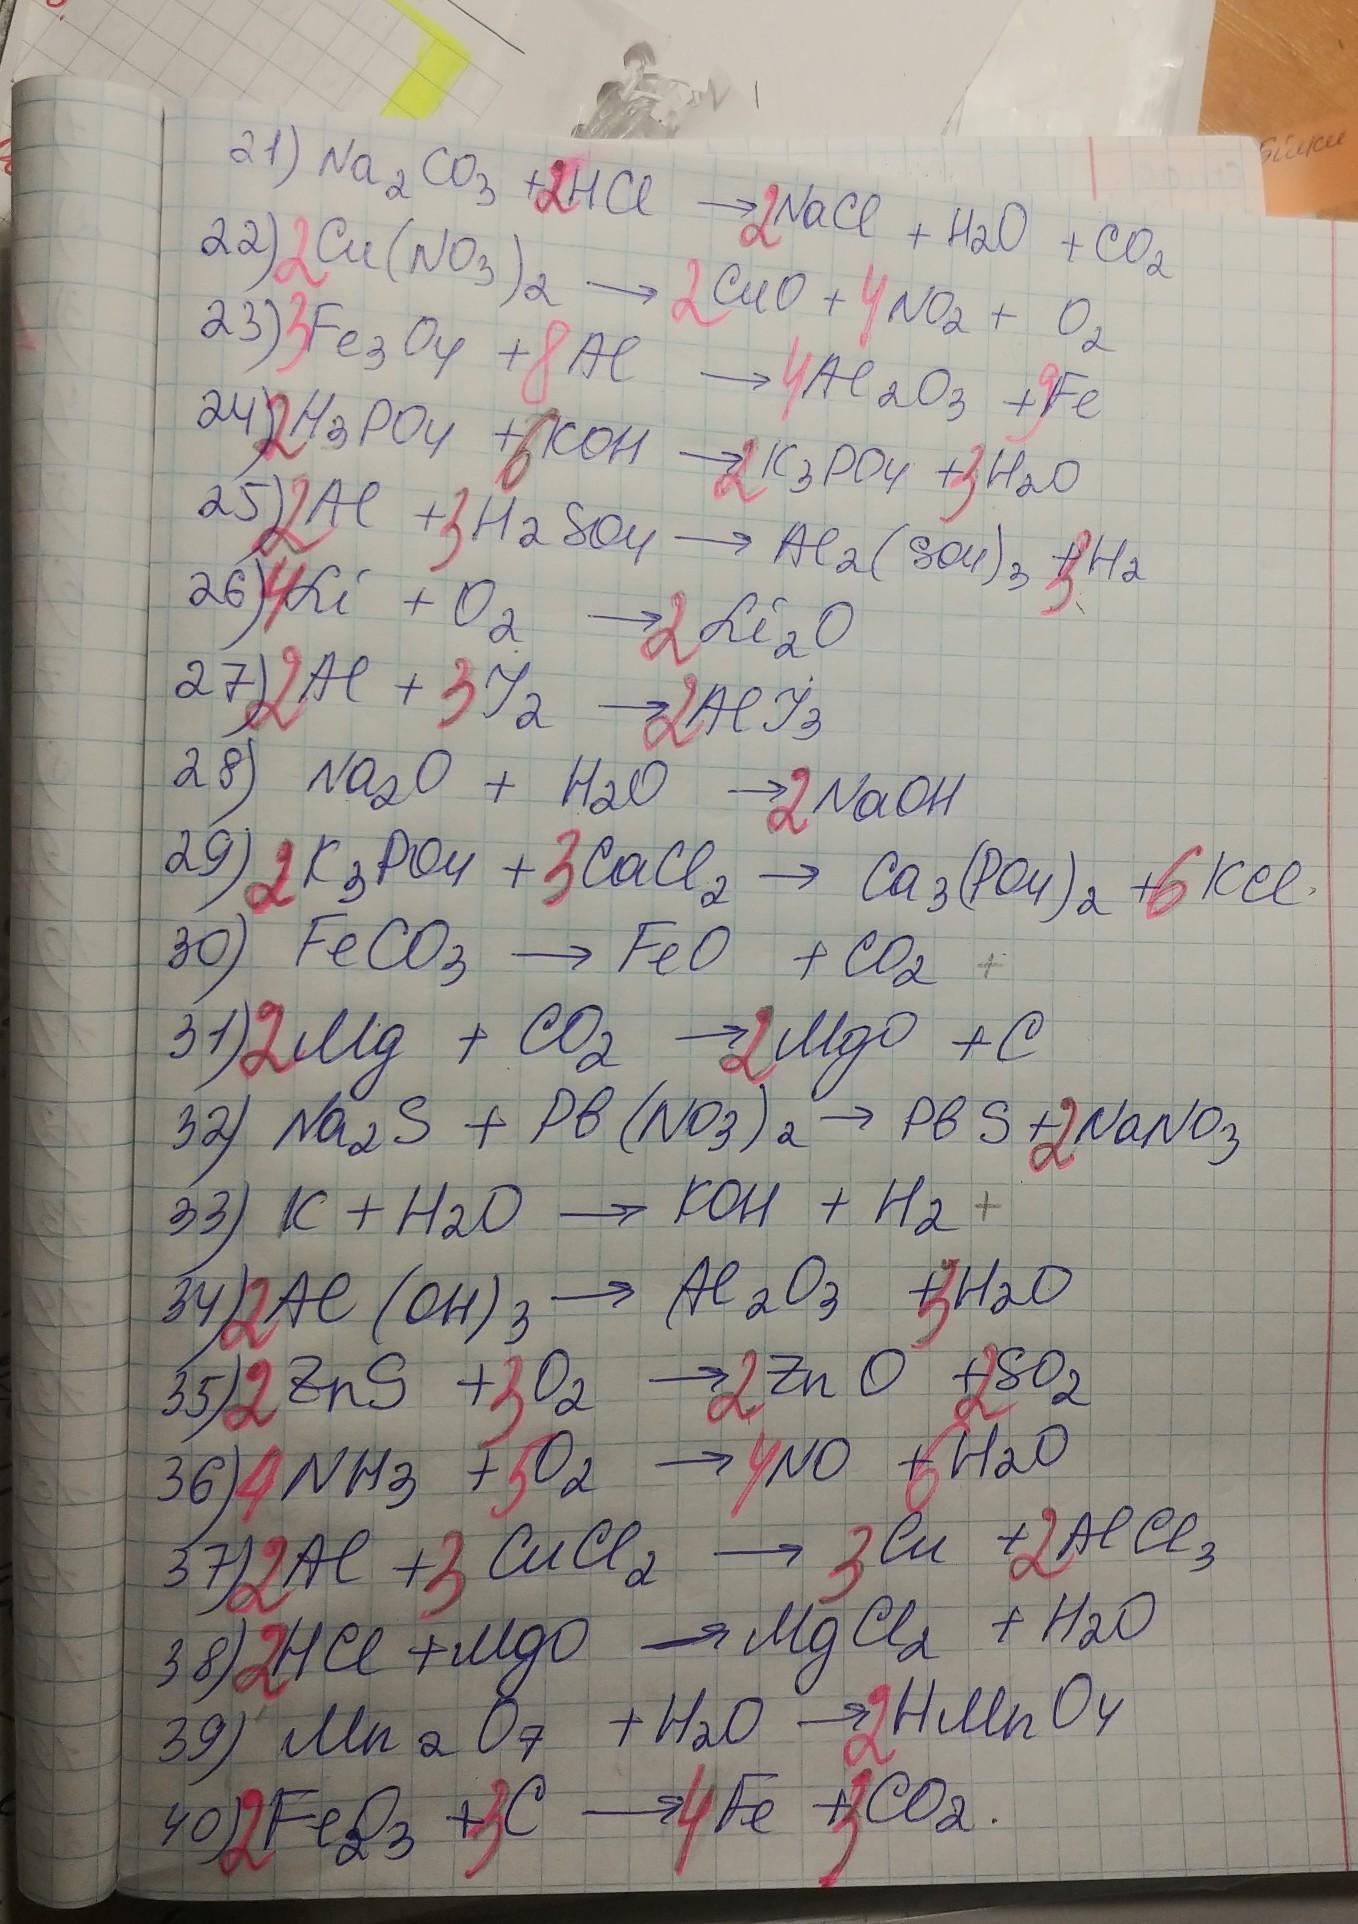 білки
21) Na2CO3 + 2HCl → 2NaCl + H2O + CO2
22) 2Cu(NO3)2 → 2CuO + 4NO2 + O2
23) 3Fe3O4 + 8Al → 4Al2O3 + 9Fe
24) 2H3PO4 + 6KOH → 2K3PO4 + 3H2O
25) 2Al + 3H2SO4 → Al2(SO4)3 + 3H2
26) 4Li + O2 → 2Li2O
27) 2Al + 3I2 → 2AlI3
28) Na2O + H2O → 2NaOH
29) 2K3PO4 + 3CaCl2 → Ca3(PO4)2 + 6KCl.
30) FeCO3 → FeO + CO2 +
31) 2Mg + CO2 → 2MgO + C
32) Na2S + Pb(NO3)2 → PbS + 2NaNO3
33) K + H2O → KOH + H2 +
34) 2Al(OH)3 → Al2O3 + 3H2O
35) 2ZnS + 3O2 → 2ZnO + 2SO2
36) 4NH3 + 5O2 → 4NO + 6H2O
37) 2Al + 3CuCl2 → 3Cu + 2AlCl3
38) 2HCl + MgO → MgCl2 + H2O
39) Mn2O7 + H2O → 2HMnO4
40) 2Fe2O3 + 3C → 4Fe + 3CO2.